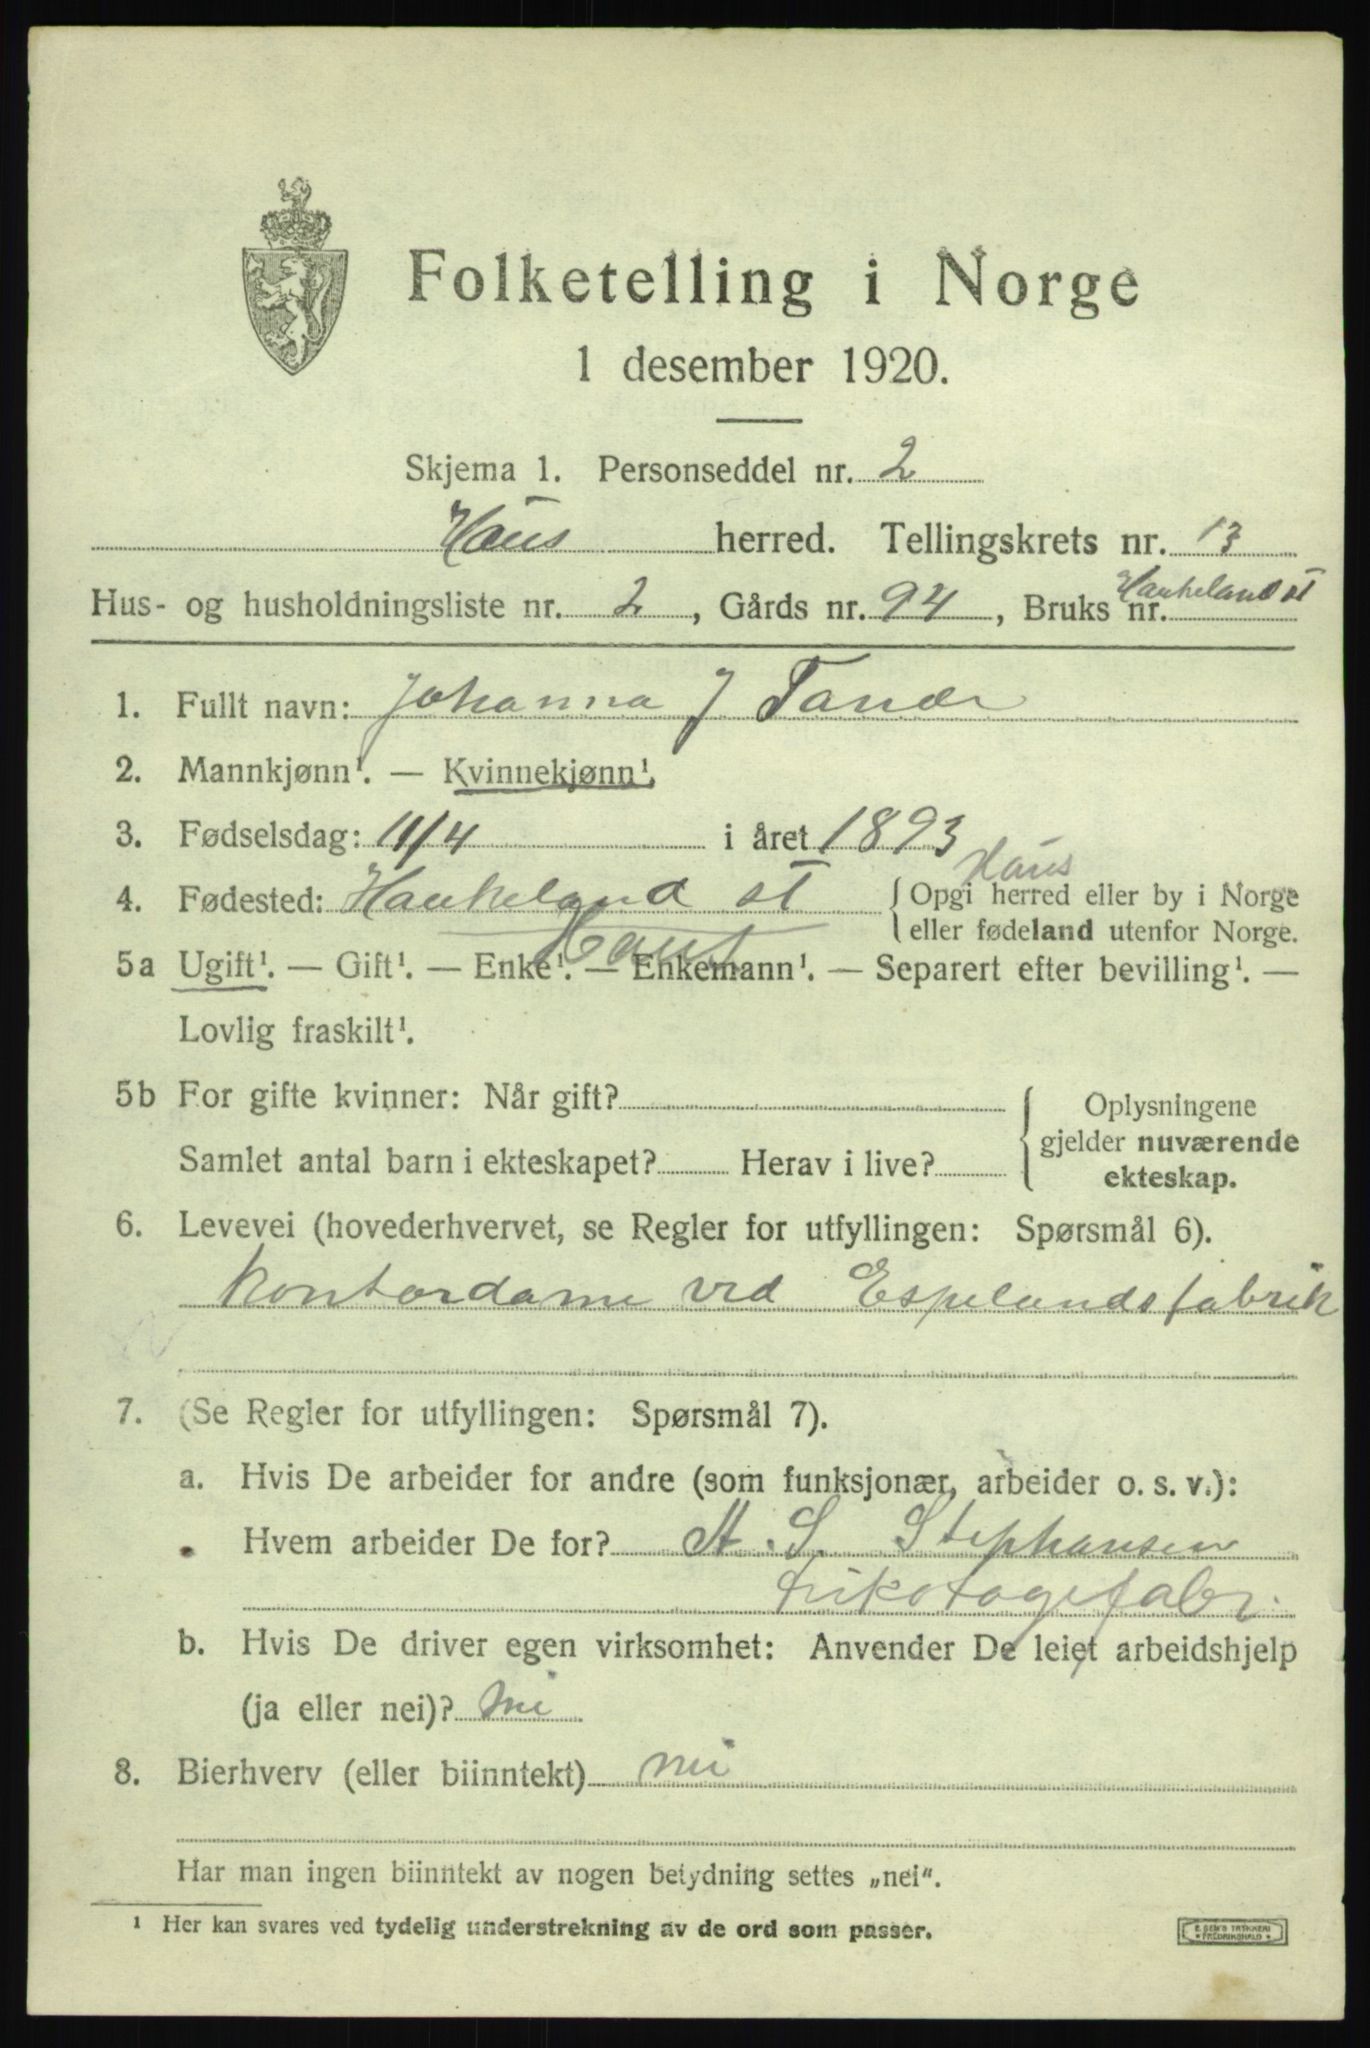 Folketelling i Norge
1 desember 1920.
Skjema 1. Personseddel nr. 2
Haus herred. Tellingskrets nr. 13
Haukeland st
Hus- og husholdningsliste nr. 2, Gårds nr. 94, Bruks nr.
1. Fullt navn: Johanna J
2. Mannkjønn¹. — Kvinnekjønn¹.
3. Fødselsdag: 11/4 i året 1893
Haus
4. Fødested: Haukeland st { Opgi herred eller by i Norge
eller fødeland utenfor Norge.
Haus
5a Ugift¹. — Gift¹. — Enke¹. — Enkemann¹. — Separert efter bevilling¹. —
Lovlig fraskilt¹.
5b For gifte kvinner: Når gift? { Oplysningene
gjelder nuværende
Samlet antal barn i ekteskapet? Herav i live?
ekteskap.
6. Levevei (hovederhvervet, se Regler for utfyllingen: Spørsmål 6).
Kontordame ved Espelandsfabrik
7. (Se Regler for utfyllingen: Spørsmål 7).
a. Hvis De arbeider for andre (som funksjonær, arbeider o. s. v.):
Hvem arbeider De for? A. S. Stephansen
trikotagefabr.
b. Hvis De driver egen virksomhet: Anvender De leiet arbeidshjelp
(ja eller nei)? nei
8. Bierhverv (eller biinntekt) nei
Har man ingen biinntekt av nogen betydning settes „nei".
¹ Her kan svares ved tydelig understrekning av de ord som passer.
E. SEM'S TRYKKERI
FREDRIKSHALD